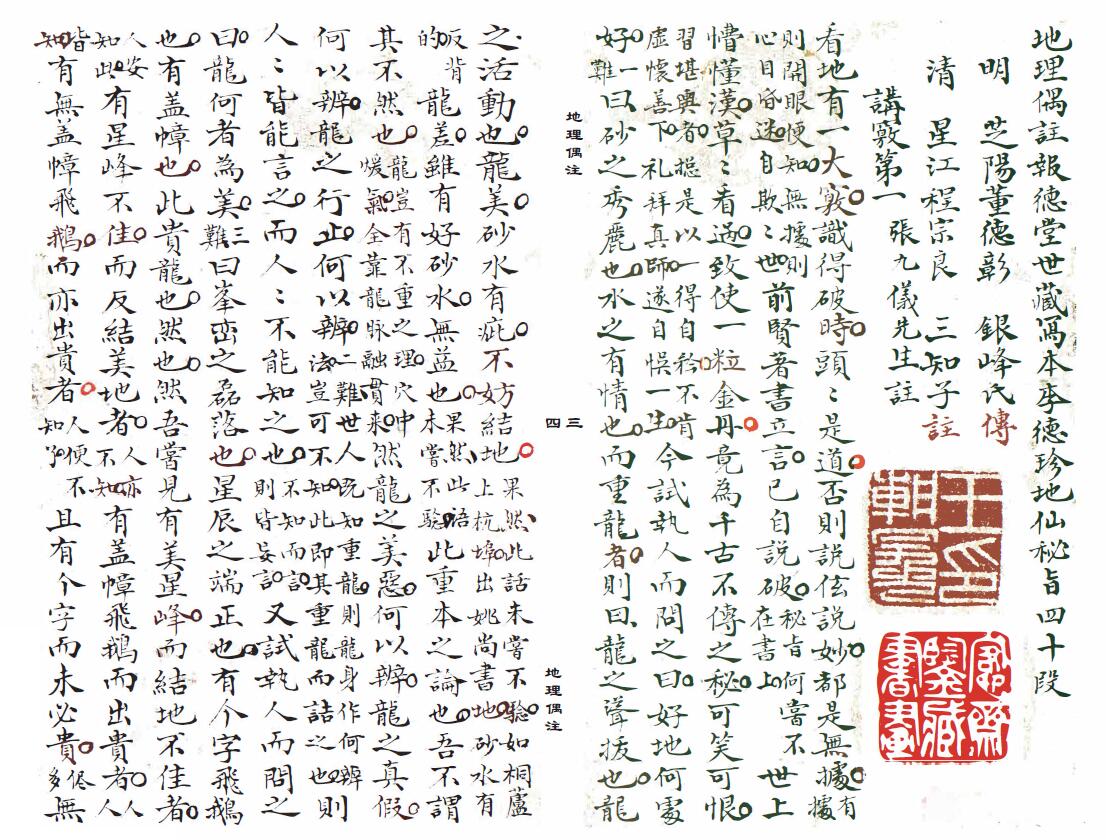 地理偶註報德堂世藏寫本李德珍地仙秘旨四十段
明 芝陽董德彰 銀峰氏傳
清 星江程宗良 三知子註
講竅第一 張九儀先生註
看地有一大竅識得破時頭〻是道否則說伭說妙都是無據有據
則開眼便知無據則心目昏迷自欺〻世前賢著書立言已自說破秘旨何嘗不在書上世上
懵懂漢草〻看過致使一粒金丹竟為千古不傳之秘可笑可恨
習堪輿者揔是以一得自矜不肯虛懷善下礼拜真師遂自悞一生今試執人而問之曰好地何處
好一難曰砂之秀麗也水之有情也而重龍者則曰龍之聳拔也龍
地理偶注
三
四
地理偶注
之活動也龍美砂水有疵不妨結地果然此話未嘗不驗如桐蘆上杭埠出姚尚書地砂水有
反背的龍差雖有好砂水無益也果然此語未嘗不驗此重本之論也吾不謂
其不然也龍豈有不重之理穴中煖氣全靠龍脉融貫來然龍之美惡何以辨龍之真假
何以辨龍之行止何以辨二難世人既知重龍則龍身作何辨法豈可不知此即其重龍而詰之也則
人〻皆能言之而人〻不能知之也不知而言則皆妄言又試執人而問之
曰龍何者為美三難曰峯巒之磊落也星辰之端正也有个字飛鵝
也有盖幛也此貴龍也然也然吾嘗見有美星峰而結地不佳者
人安知此有星峰不佳而反結美地者人亦不知有盖幛飛鵝而出貴者人人
皆知有無盖幛飛鵝而亦出貴者人便不知了且有个字而未必貴儘多無